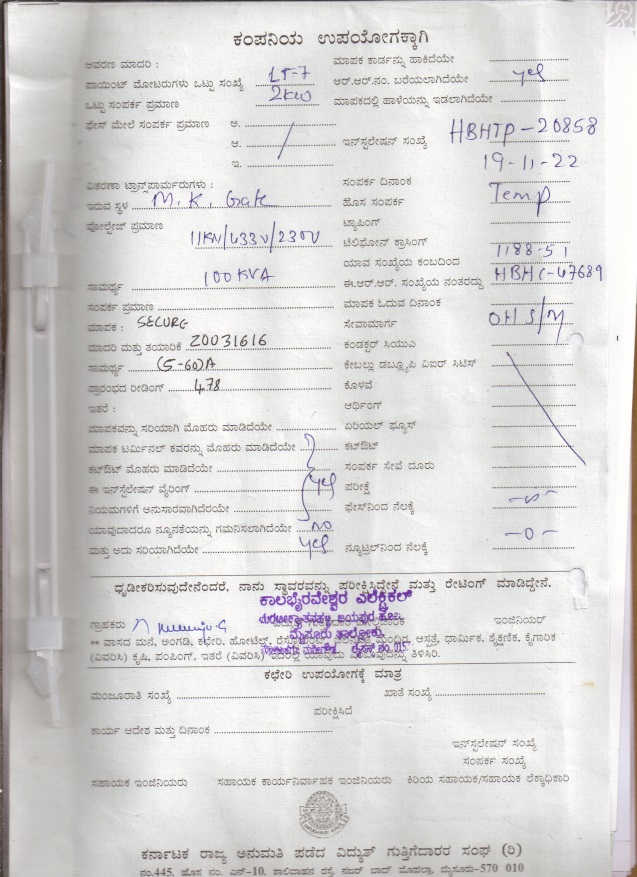 ಕಂಪನಿಯ ಉಪಯೋಗಕ್ಕಾಗಿ
ಆವರಣ ಮಾದರಿ : ಮಾಪಕ ಕಾರ್ಡನ್ನು ಹಾಕಿದೆಯೇ
ಪಾಯಿಂಟ್ ಮೋಟರುಗಳು ಒಟ್ಟು ಸಂಖ್ಯೆ LT-7 ಆರ್.ಆರ್.ನಂ. ಬರೆಯಲಾಗಿದೆಯೇ yes
ಒಟ್ಟು ಸಂಪರ್ಕ ಪ್ರಮಾಣ 2KW ಮಾಪಕದಲ್ಲಿ ಹಾಳೆಯನ್ನು ಇಡಲಾಗಿದೆಯೇ
ಫೇಸ್ ಮೇಲೆ ಸಂಪರ್ಕ ಪ್ರಮಾಣ ಅ.
ಆ. ಇನ್‌ಸ್ಟಲೇಷನ್ ಸಂಖ್ಯೆ HBHTP-20858
ಇ. 19-11-22
ವಿತರಣಾ ಟ್ರಾನ್ಸ್‌ಪಾರ್ಮರುಗಳು : ಸಂಪರ್ಕ ದಿನಾಂಕ
ಇರುವ ಸ್ಥಳ M.K. Gate ಹೊಸ ಸಂಪರ್ಕ Temp
ವೋಲ್ಟೇಜ್ ಪ್ರಮಾಣ 11KV/433V/230V ಟ್ಯಾಪಿಂಗ್
ಟೆಲಿಫೋನ್ ಕ್ರಾಸಿಂಗ್
ಯಾವ ಸಂಖ್ಯೆಯ ಕಂಬದಿಂದ 1188-51
ಸಾಮರ್ಥ್ಯ 100KVA ಈ.ಆರ್.ಆರ್. ಸಂಖ್ಯೆಯ ನಂತರದ್ದು HBHC-47689
ಸಂಪರ್ಕ ಪ್ರಮಾಣ ಮಾಪಕ ಓದುವ ದಿನಾಂಕ
ಮಾಪಕ : SECURE ಸೇವಾಮಾರ್ಗ OH S/M
ಮಾದರಿ ಮತ್ತು ತಯಾರಿಕೆ 20031616 ಕಂಡಕ್ಟರ್ ಸಿಯುಎ
ಸಾಮರ್ಥ್ಯ (5-60)A ಕೇಬಲ್ಲು ಡಬ್ಲ್ಯೂಪಿ ಎಐರ್ ಸಿಟಿಸ್
ಪ್ರಾರಂಭದ ರೀಡಿಂಗ್ 478 ಕೊಳವೆ
ಇತರೆ : ಆರ್ಥಿಂಗ್
ಮಾಪಕವನ್ನು ಸರಿಯಾಗಿ ಮೊಹರು ಮಾಡಿದೆಯೇ ಏರಿಯಲ್ ಫ್ಯೂಸ್
ಮಾಪಕ ಟರ್ಮಿನಲ್ ಕವರನ್ನು ಮೊಹರು ಮಾಡಿದೆಯೇ ಕಟ್‌ಔಟ್
ಕಟ್‌ಔಟ್ ಮೊಹರು ಮಾಡಿದೆಯೇ ಸಂಪರ್ಕ ಸೇವೆ ದೂರು
ಈ ಇನ್‌ಸ್ಟಲೇಷನ್ ವೈರಿಂಗ್ yes ಪರೀಕ್ಷೆ
ನಿಯಮಗಳಿಗೆ ಅನುಸಾರವಾಗಿದೆಯೇ ಫೇಸ್‌ನಿಂದ ನೆಲಕ್ಕೆ
ಯಾವುದಾದರೂ ನ್ಯೂನತೆಯನ್ನು ಗಮನಿಸಲಾಗಿದೆಯೇ no
ಮತ್ತು ಅದು ಸರಿಯಾಗಿದೆಯೇ yes ನ್ಯೂಟ್ರಲ್‌ನಿಂದ ನೆಲಕ್ಕೆ -0-
ಧೃಡೀಕರಿಸುವುದೇನೆಂದರೆ, ನಾನು ಸ್ಥಾವರವನ್ನು ಪರೀಕ್ಷಿಸಿದ್ದೇನೆ ಮತ್ತು ರೇಟಿಂಗ್ ಮಾಡಿದ್ದೇನೆ.
ಕಾಲಭೈರವೇಶ್ವರ ಎಲೆಕ್ಟ್ರಿಕಲ್
ಜಯಪುರ ಹೋ.
ಗ್ರಾಹಕರು ಇಂಜಿನಿಯರ್
ಮೈಸೂರು ತಾಲೋಕು.
** ವಾಸದ ಮನೆ, ಅಂಗಡಿ, ಕಛೇರಿ, ಹೋಟೆಲ್, ಆಸ್ಪತ್ರೆ, ಧಾರ್ಮಿಕ, ಶೈಕ್ಷಣಿಕ, ಕೈಗಾರಿಕ
(ವಿವರಿಸಿ) ಕೃಷಿ, ಪಂಪಿಂಗ್, ಇತರೆ (ವಿವರಿಸಿ) ಇದರಲ್ಲಿ ಯಾವುದು ತಿಳಿಸಿರಿ.
ಕಛೇರಿ ಉಪಯೋಗಕ್ಕೆ ಮಾತ್ರ
ಮಂಜೂರಾತಿ ಸಂಖ್ಯೆ ಖಾತೆ ಸಂಖ್ಯೆ
ಪರೀಕ್ಷಿಸಿದೆ
ಕಾರ್ಯ ಆದೇಶ ಮತ್ತು ದಿನಾಂಕ
ಇನ್‌ಸ್ಟಲೇಷನ್ ಸಂಖ್ಯೆ
ಸಂಪರ್ಕ ಸಂಖ್ಯೆ
ಸಹಾಯಕ ಇಂಜಿನಿಯರು ಸಹಾಯಕ ಕಾರ್ಯನಿರ್ವಾಹಕ ಇಂಜಿನಿಯರು ಕಿರಿಯ ಸಹಾಯಕ/ಸಹಾಯಕ ಲೆಕ್ಕಾಧಿಕಾರಿ
ಕರ್ನಾಟಕ ರಾಜ್ಯ ಅನುಮತಿ ಪಡೆದ ವಿದ್ಯುತ್ ಗುತ್ತಿಗೆದಾರರ ಸಂಘ (ರಿ)
ನಂ.445, ಹೊಸ ನಂ. ಎನ್-10, ಶಾಲಿವಾಹನ ರಸ್ತೆ, ನಜರ್ ಬಾದ್ ಮೊಹಲ್ಲಾ, ಮೈಸೂರು-570 010